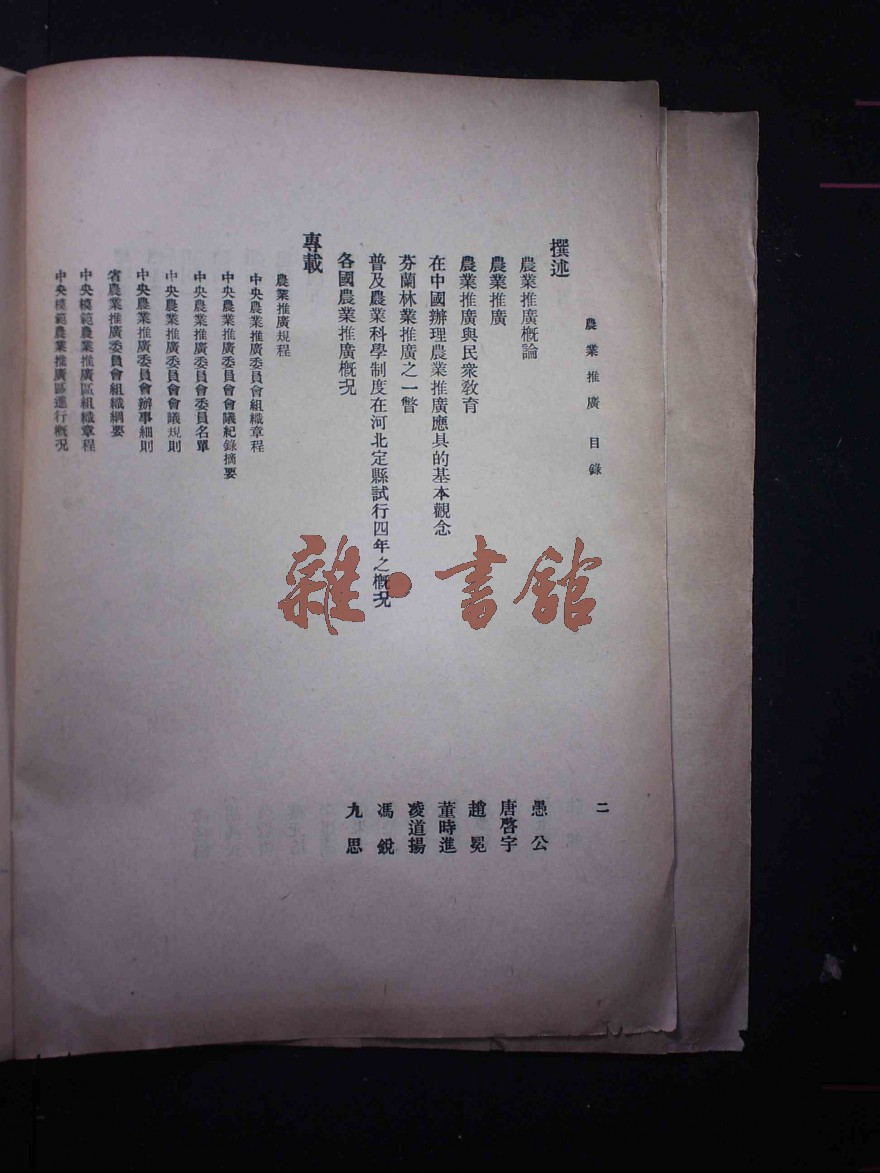 農業推廣 目錄
二
撰述
農業推廣概論 愚公
農業推廣 唐啓宇
農業推廣與民衆教育 趙冕
在中國辦理農業推廣應具的基本觀念 董時進
芬蘭林業推廣之一瞥 凌道揚
普及農業科學制度在河北定縣試行四年之概況 馮銳
各國農業推廣概況 九思
專載
農業推廣規程
中央農業推廣委員會組織章程
中央農業推廣委員會會議紀錄摘要
中央農業推廣委員會委員名單
中央農業推廣委員會會議規則
中央農業推廣委員會辦事細則
省農業推廣委員會組織綱要
中央模範農業推廣區組織章程
中央模範農業推廣區進行概況
雜·書館